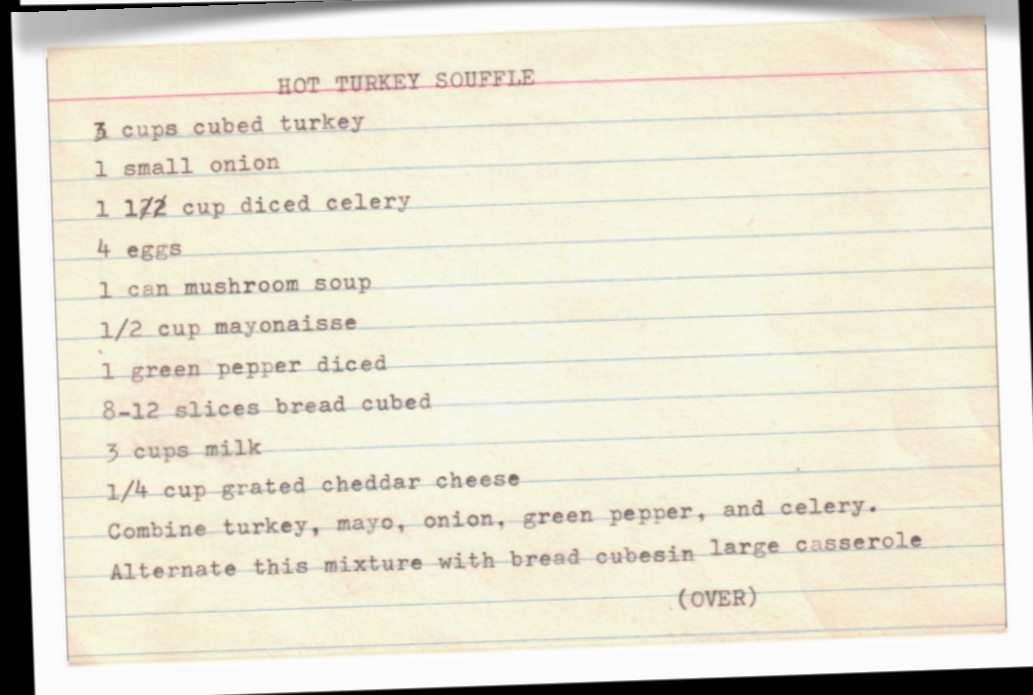 HOT TURKEY SOUFFLE
3 cups cubed turkey
1 small onion
1 1/2 cup diced celery
4 eggs
1 can mushroom soup
1/2 cup mayonaisse
1 green pepper diced
8-12 slices bread cubed
3 cups milk
1/4 cup grated cheddar cheese
Combine turkey, mayo, onion, green pepper, and celery.
Alternate this mixture with bread cubesin large casserole
(OVER)